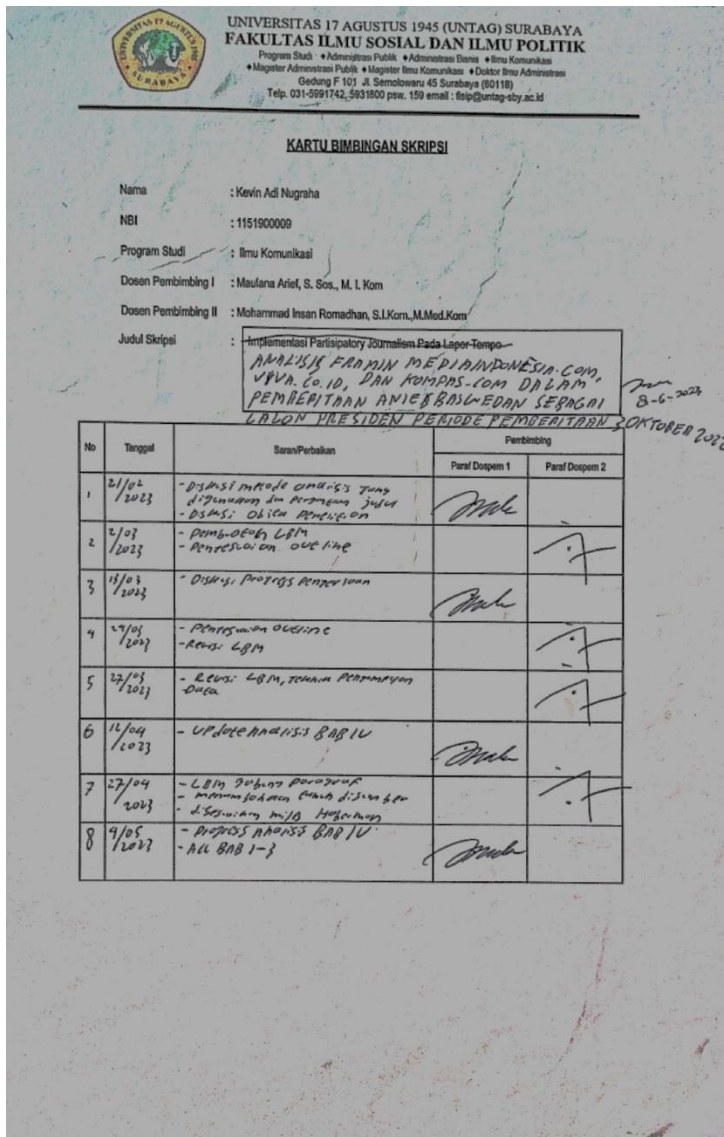 UNIVERSITAS 17 AGUSTUS 1945 (UNTAG) SURABAYA
FAKULTAS ILMU SOSIAL DAN ILMU POLITIK
Program Studi : ♦Administrasi Publik ♦Administrasi Bisnis ♦Ilmu Komunikasi
♦Magister Administrasi Publik ♦Magister Ilmu Komunikasi ♦Doktor Ilmu Administrasi
Gedung F 101 Jl. Semolowaru 45 Surabaya (60118)
Telp. 031-5991742, 5931800 psw. 159 email : fisip@untag-sby.ac.id
KARTU BIMBINGAN SKRIPSI
Nama : Kevin Adi Nugraha
NBI : 1151900009
Program Studi : Ilmu Komunikasi
Dosen Pembimbing I : Maulana Arief, S. Sos., M. I. Kom
Dosen Pembimbing II : Mohammad Insan Romadhan, S.I.Kom.,M.Med.Kom
Judul Skripsi : Implementasi Partisipatory Journalism Pada Lapor Tempo
ANALISIS FRAMIN MEDIAINDONESIA.COM,
VIVA.CO.ID, DAN KOMPAS.COM DALAM
PEMBERITAAN ANIES BASWEDAN SEBAGAI
CALON PRESIDEN PERIODE PEMBERITAAN 3 OKTOBER 2022
8-6-2023
No Tanggal Saran/Perbaikan Pembimbing
Paraf Dospem 1 Paraf Dospem 2
1 21/02 2023 - Diskusi metode analisis yang
digunakan dan judul
- Diskusi Objek Penelitian
2 2/03 2023 - Pembuatan LBM
- Penyesuaian outline
3 13/03 2023 - Diskusi Progress Pengerjaan
4 2023 - Penyesuaian outline
- Revisi LBM
5 27/03 2023 - Revisi LBM, Teknik Pengumpulan
Data
6 12/04 2023 - Update Analisis BAB IV
7 27/04 2023 - LBM gabung paragraf
- menambahkan
- disesuaikan
8 9/05 2023 - Progress Analisis BAB IV
- ACC BAB 1-3